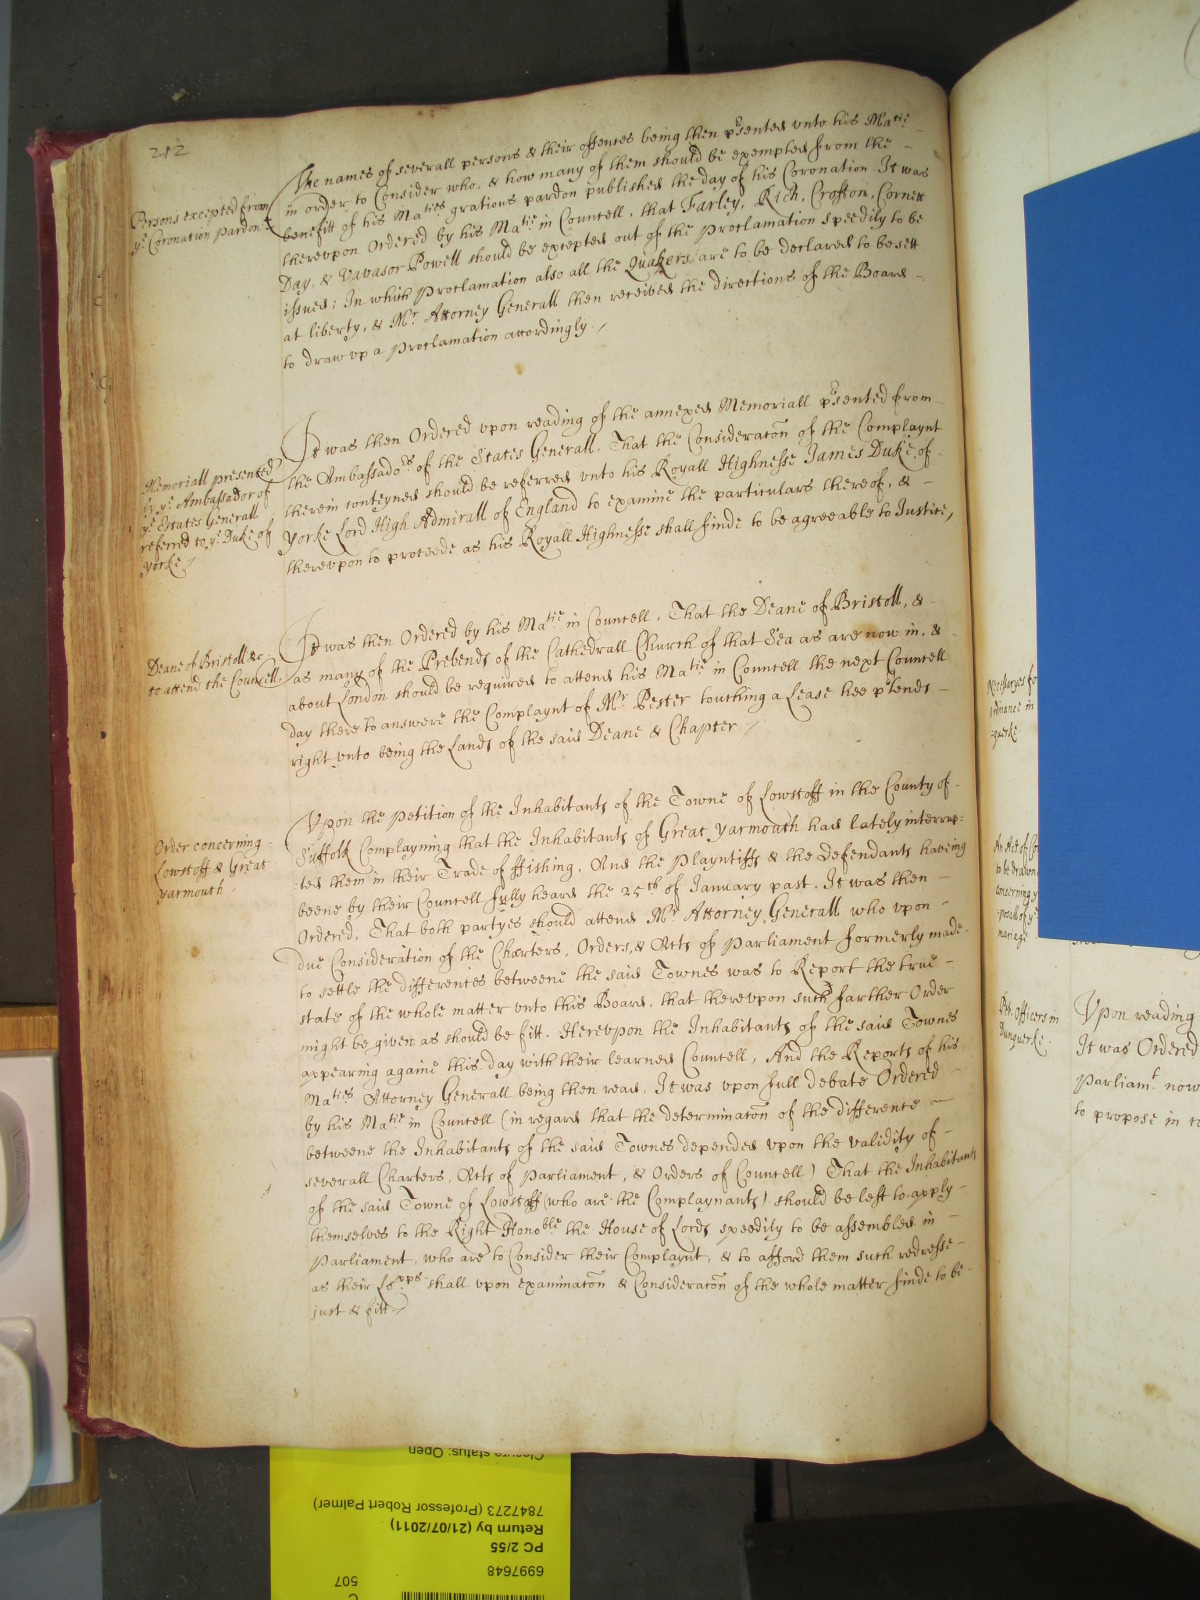 212
Persons excepted from
ye Coronation pardon
The names of severall persons & their offences being then psented unto his Matie
in order to Consider who, & how many of them should be exempted from the
benefitt of his Maties gratious pardon published the day of his Coronation. It was
therevpon Ordered by his Matie in Councell, that Farley, Rich, Crofton, Cornett
Day, & Vavasor Powell should be excepted out of the Proclamation speedily to be
issued; In which Proclamation also all the Quakers are to be declared to be sett
at liberty, & Mr. Attorney Generall then received the directions of the Board
to draw vp a Proclamation accordingly.
Memoriall presented
by ye Ambassador of
ye Estates Generall
referred to ye Duke of
yorke
It was then Ordered vpon reading of the annexed Memoriall psented from
the Ambassadors of the States Generall. That the Consideraton of the Complaynt
therein conteyned should be referred vnto his Royall Highnesse James Duke of
yorke Lord High Admirall of England to examine the particulars thereof, &
therevpon to proceede as his Royall Highnesse shall finde to be agreeable to Justice,
Deane of Bristoll &c
to attend the Councell
It was then Ordered by his Matie in Councell, That the Deane of Bristoll, &
as many of the Prebends of the Cathedrall Church of that Sea as are now in, &
about London should be required to attend his Matie in Councell the next Councell
day there to answere the Complaynt of Mr Pester touching a Lease hee ptends
right vnto being the Lands of the said Deane & Chapter
Order concerning
Lowstoff & Great
yarmouth
Vpon the Petition of the Inhabitants of the Towne of Lowstoff in the County of
Suffolk Complayning that the Inhabitants of Great yarmouth had lately interrup=
ted them in their Trade of ffishing. And the Playntiffs & the Defendants having
beene by their Councell fully heard the 25th of January past. It was then
Ordered, That both partyes should attend Mr Attorney Generall who vpon
due Consideration of the Charters, Orders, & Acts of Parliament formerly made
to settle the differences betweene the said Townes was to Report the true
state of the whole matter vnto this Board, that therevpon such farther Order
might be given as should be fitt. Herevpon the Inhabitants of the said Townes
appearing againe this day with their learned Councell, And the Reports of his
Maties Attorney Generall being then read, It was vpon full debate Ordered
by his Matie in Councell (in regard that the determinaton of the difference
betweene the Inhabitants of the said Townes depended vpon the validity of
severall Charters, Acts of Parliament, & Orders of Councell) That the Inhabitants
of the said Towne of Lowstoff (who are the Complaynants) should be left to apply
themselves to the Right Honoble the House of Lords speedily to be assembled in
Parliament, who are to Consider their Complaynt, & to afford them such redresse
as their Lopps shall vpon examinaton & Consideraton of the whole matter finde to be
just & fitt
to be drawn
concerning
mariage
officers in
Dunquerke.
Vpon reading
It was Ordered
Parliamt now
to propose in
Closure status: Open
7847273 (Professor Robert Palmer)
Return by (21/07/2011)
PC 2/55
6997648
507